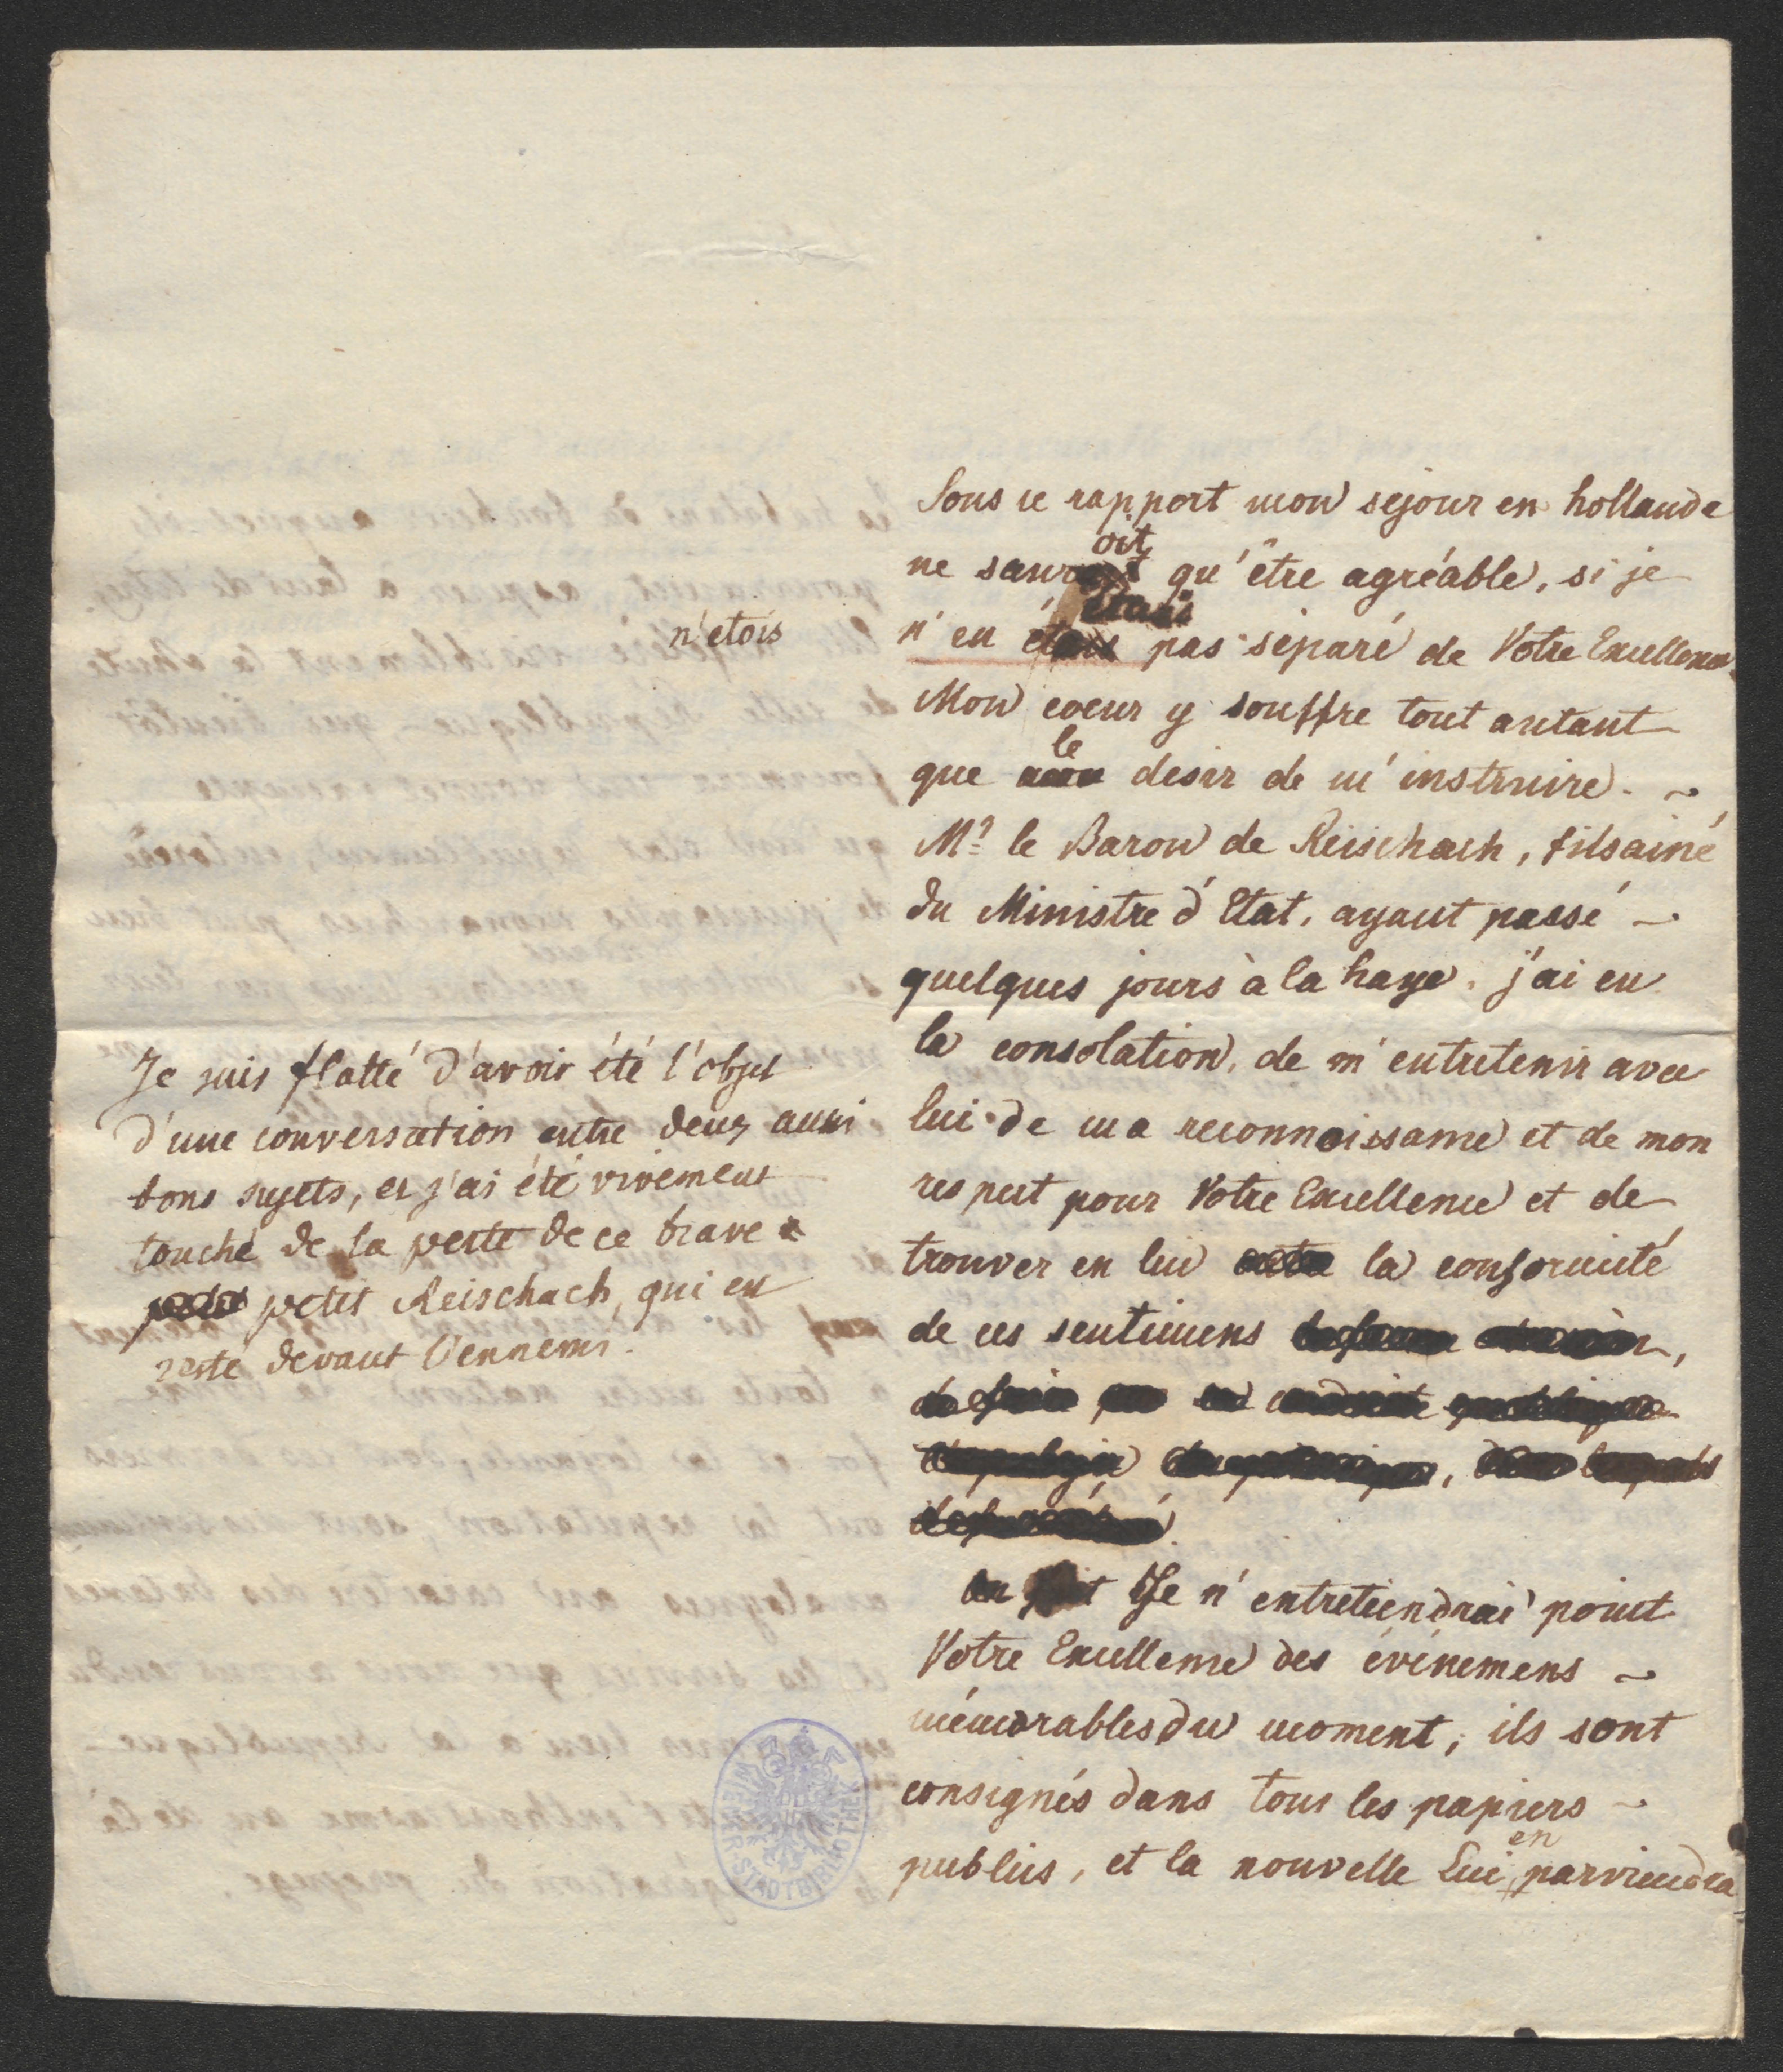 Sous ce rapport mon sejour en hollande
oit
ne sauroit qu'être agréable, si je
n'en étois pas séparé de Votre Excellence.
n'etois
Mon coeur y souffre tout autant
le
que desir de m'instruire.
Mr. le Baron de Reischach, fils ainé
du Ministre d'Etat, ayant passé
quelques jours à la haye, j'ai eu
la consolation, de m'entretenir avec
lui de ma reconnoissance et de mon
respect pour Votre Excellence et de
trouver en lui la conformité
de ces sentimens
Je n'entretiendrai point
Votre Excellence des événemens
mémorables du moment, ils sont
consignés dans tous les papiers
en
publics, et la nouvelle Lui parviendra
Je suis flatté d'avoir été l'objet
d'une conversation entre deux aussi
bons sujets, et j'ai été vivement
touché de la perte de ce brave
petit Reischach, qui en
resté devant l'ennemi.
WIENER STADTBIBLIOTHEK